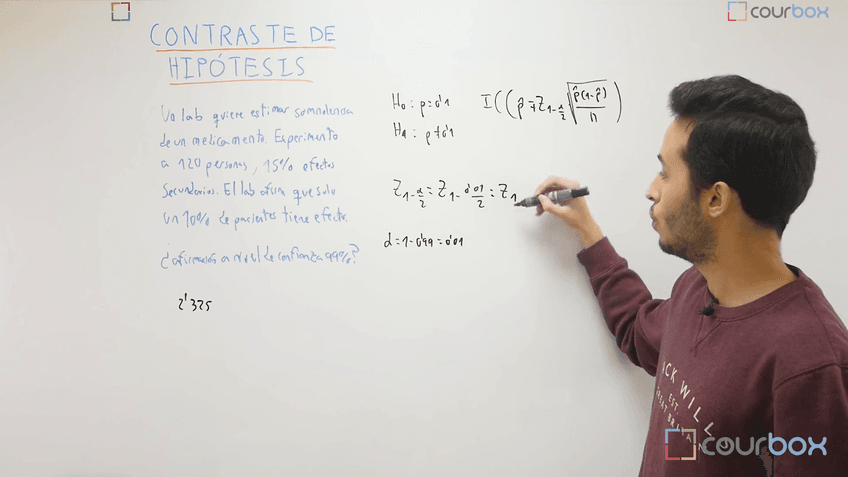 courbox
CONTRASTE DE
HIPÓTESIS
Un lab quiere estimar somnolencia
de un medicamento. Experimento
a 120 personas, 15% efectos
Secundarios. El lab afirma que solo
un 10% de pacientes tiene efecto.
¿afirmamos a nivel de confianza 99%?
2'325
H₀: p=0'1
H₁: p≠0'1
I((p̂ ∓ Z₁₋α/₂ √(p̂(1-p̂)/n))
Z₁₋α/₂ = Z₁₋₀'₀₁/₂ = Z₁
α=1-0'99=0'01
CK WILL
EST.
GREAT BRITAIN
courbox